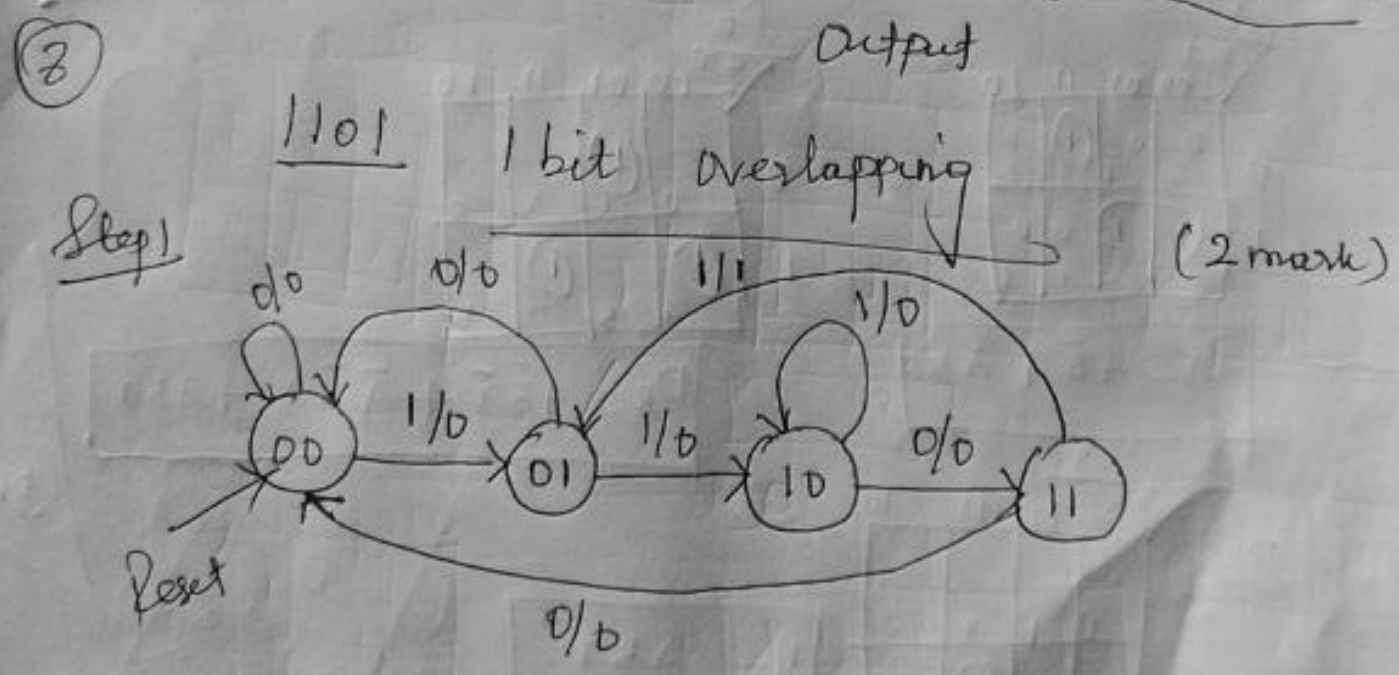 8
Output
1101 1 bit overlapping
Step1
(2 mark)
0/0
0/0
1/1
1/0
1/0
1/0
0/0
00
01
10
11
Reset
0/0